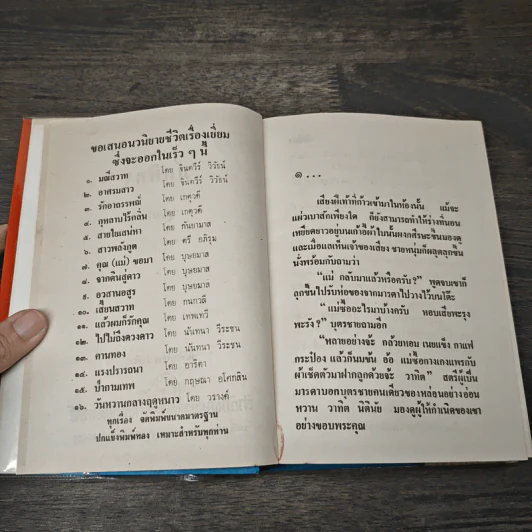 ขอเสนอนวนิยายชีวิตเรื่องเยี่ยม
ซึ่งจะออกในเร็ว ๆ นี้
๑. มณีสวาท โดย จินตวีร์ วิวัธน์
๒. อาศรมสาว โดย จินตวีร์ วิวัธน์
๓. รักอาถรรพณ์ โดย เกตุวดี
๔. กุหลาบไร้กลิ่น โดย เกตุวดี
๕. สายใยเสน่หา โดย กันยามาส
๖. สาวพลังกูต โดย ตรี อภิรุม
๗. คุณ (แม่) ขอมา โดย บุษยมาส
๘. จากดินสู่ดาว โดย บุษยมาส
๙. อวสานอสูร โดย บุษยมาส
๑๐. เสี้ยนสวาท โดย กนกวลี
๑๑. แล้วผมก็รักคุณ โดย เทพเทวี
๑๒. ไปไม่ถึงดวงดาว โดย นันทนา วีระชน
๑๓. คานทอง โดย นันทนา วีระชน
๑๔. แรงปรารถนา โดย อาริตา
๑๕. ป่ากามเทพ โดย กฤษณา อโศกสิน
๑๖. วันหวานกลางฤดูหนาว โดย วราลงค์
ทุกเรื่อง จัดพิมพ์ขนาดมาตรฐาน
ปกแข็งพิมพ์ทอง เหมาะสำหรับทุกท่าน
๑ ...
เสียงฝีเท้าที่ก้าวเข้ามาในห้องนั้น แม้จะ
แผ่วเบาสักเพียงใด ก็ยังสามารถทำให้ร่างที่นอน
เหยียดยาวอยู่บนเก้าอี้ผ้าใบนั้นผงกศีรษะขึ้นมองดู
และเมื่อแลเห็นเจ้าของเสียง ชายหนุ่มก็ผุดลุกขึ้น
นั่งพร้อมกับถามว่า
“แม่ กลับมาแล้วหรือครับ?” พูดจบเขาก็
ลุกขึ้นไปรับห่อของจากมารดาไปวางไว้บนโต๊ะ
“แม่ซื้ออะไรมาบ้างครับ หอบเสียพะรุง
พะรัง?” บุตรชายถามอีก
“หลายอย่างจ้ะ กล้วยหอม เนยแข็ง กาแฟ
กระป๋อง แล้วก็นมข้น อ้อ แม่ซื้อกางเกงแพรกับ
ผ้าเช็ดตัวมาฝากลูกด้วยจ้ะ วาทิต” สตรีผู้เป็น
มารดาบอกบุตรชายคนเดียวของหล่อนอย่างอ่อน
หวาน วาทิต นิตินัย มองดูผู้ให้กำเนิดของเขา
อย่างขอบพระคุณ